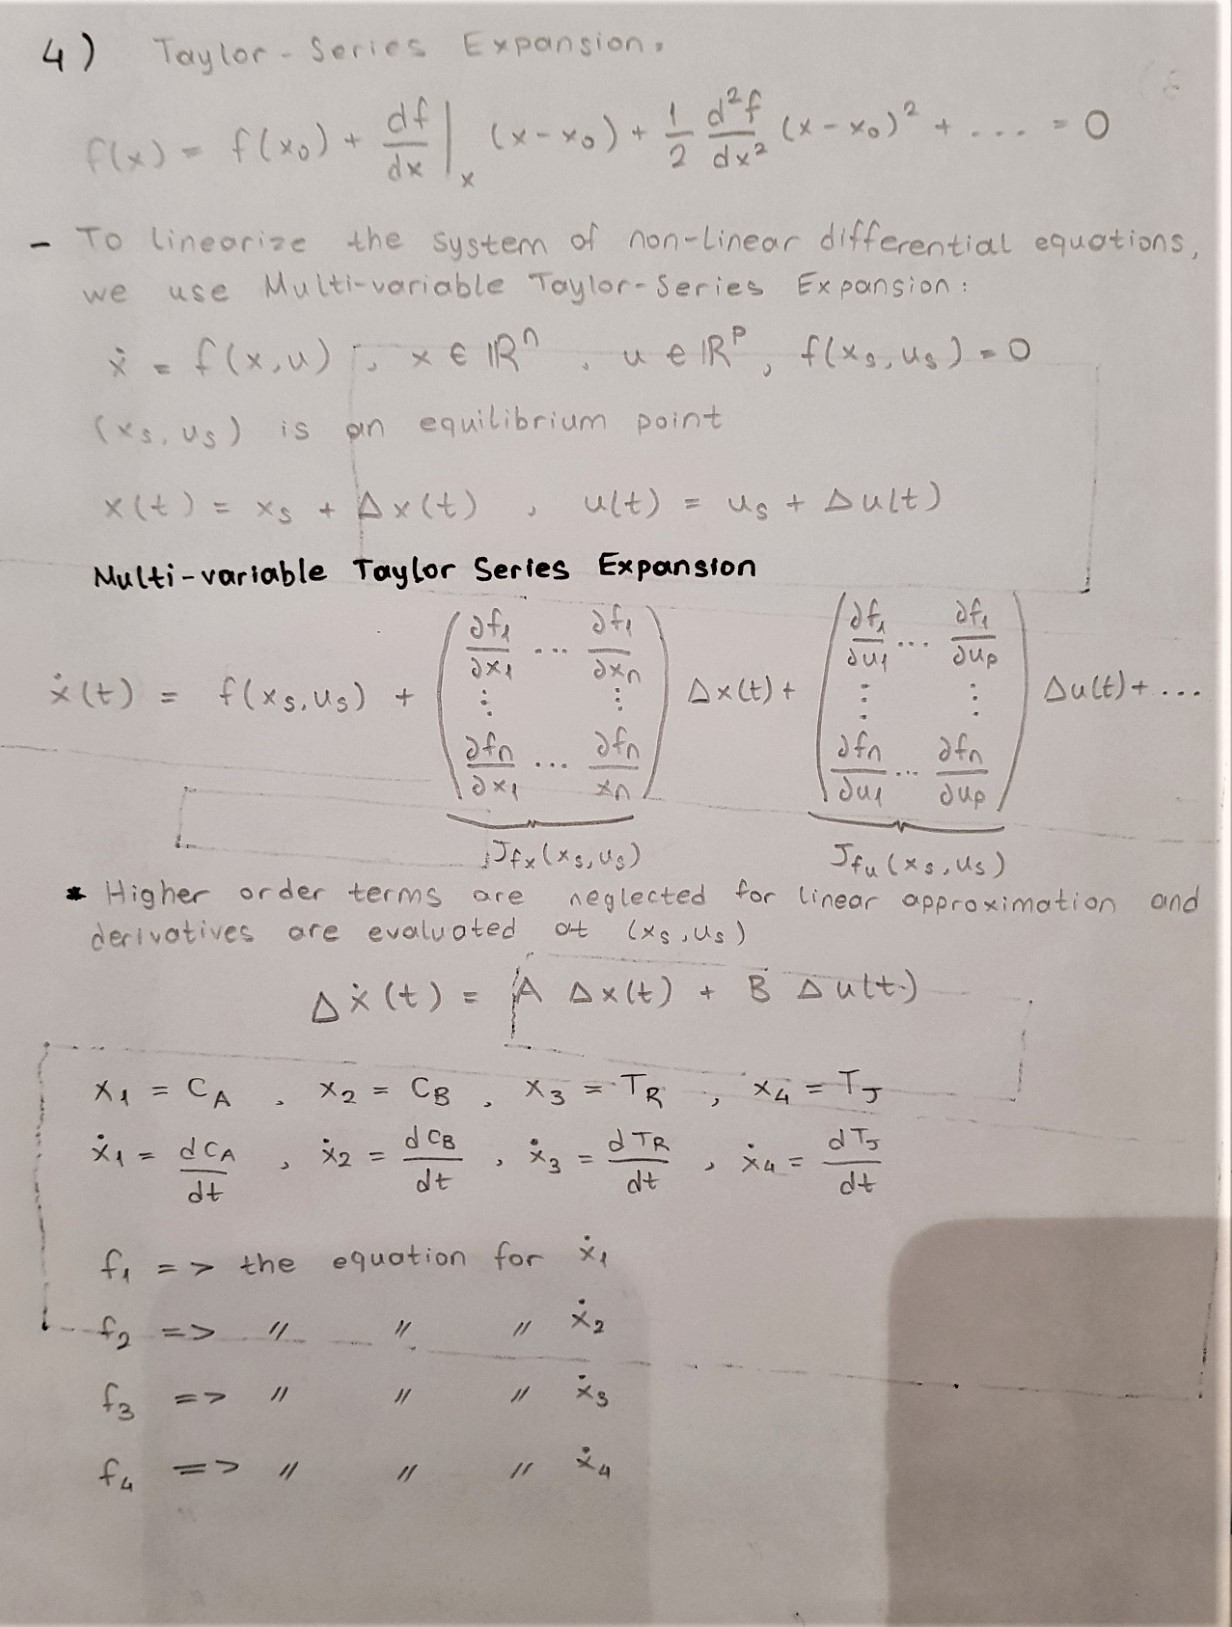 4) Taylor-Series Expansion.
f(x) = f(x₀) + df/dx |ₓ (x-x₀) + 1/2 d²f/dx² (x-x₀)² + .... = 0
- To linearize the system of non-linear differential equations,
we use Multi-variable Taylor-Series Expansion:
ẋ = f(x,u) , x ∈ ℝⁿ , u ∈ ℝᵖ , f(xₛ,uₛ) = 0
(xₛ,uₛ) is an equilibrium point
x(t) = xₛ + Δx(t) , u(t) = uₛ + Δu(t)
Multi-variable Taylor Series Expansion
ẋ(t) = f(xₛ,uₛ) + (∂f₁/∂x₁ ... ∂f₁/∂xₙ ⋮ ⋮ ∂fₙ/∂x₁ ... ∂fₙ/xₙ) Δx(t) + (∂f₁/∂u₁ ... ∂f₁/∂uₚ ⋮ ⋮ ∂fₙ/∂u₁ ... ∂fₙ/∂uₚ) Δu(t) + ...
J_fx(xₛ,uₛ) J_fu(xₛ,uₛ)
* Higher order terms are neglected for linear approximation and
derivatives are evaluated at (xₛ,uₛ)
Δẋ(t) = A Δx(t) + B Δu(t)
x₁ = C_A , x₂ = C_B , x₃ = T_R , x₄ = T_J
ẋ₁ = dC_A/dt , ẋ₂ = dC_B/dt , ẋ₃ = dT_R/dt , ẋ₄ = dT_J/dt
f₁ => the equation for ẋ₁
f₂ => " " " ẋ₂
f₃ => " " " ẋ₃
f₄ => " " " ẋ₄